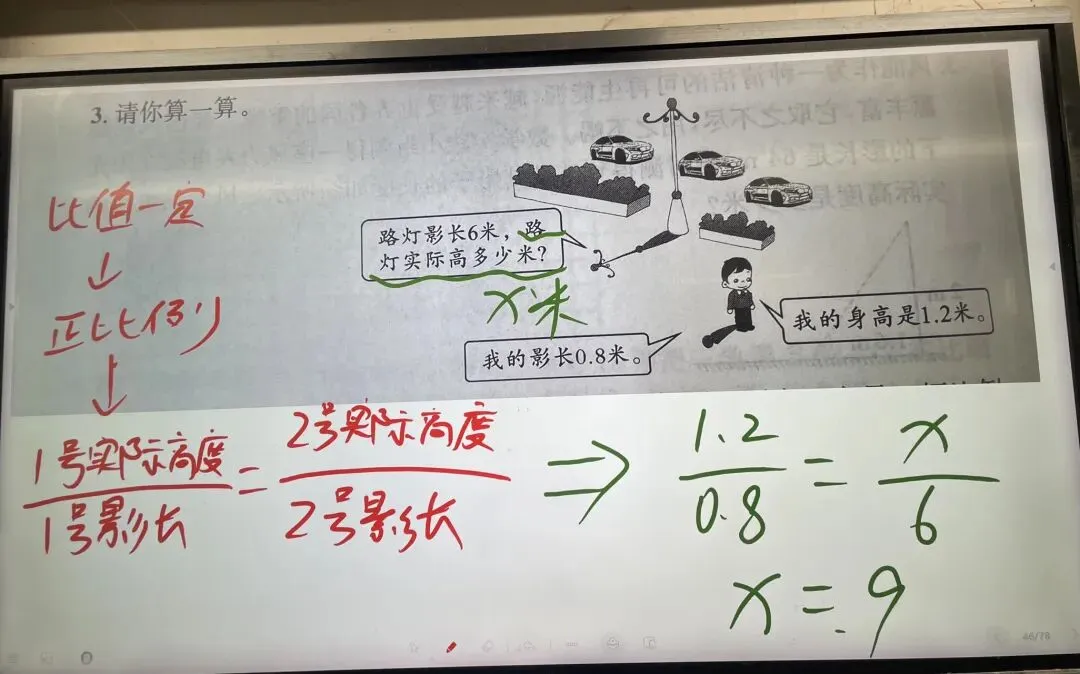 3. 请你算一算。
路灯影长6米，路
灯实际高多少米？
x米
我的身高是1.2米。
我的影长0.8米。
比值一定
↓
正比例
↓
1号实际高度/1号影长 = 2号实际高度/2号影长 ⇒ 1.2/0.8 = x/6
x = 9
46/78